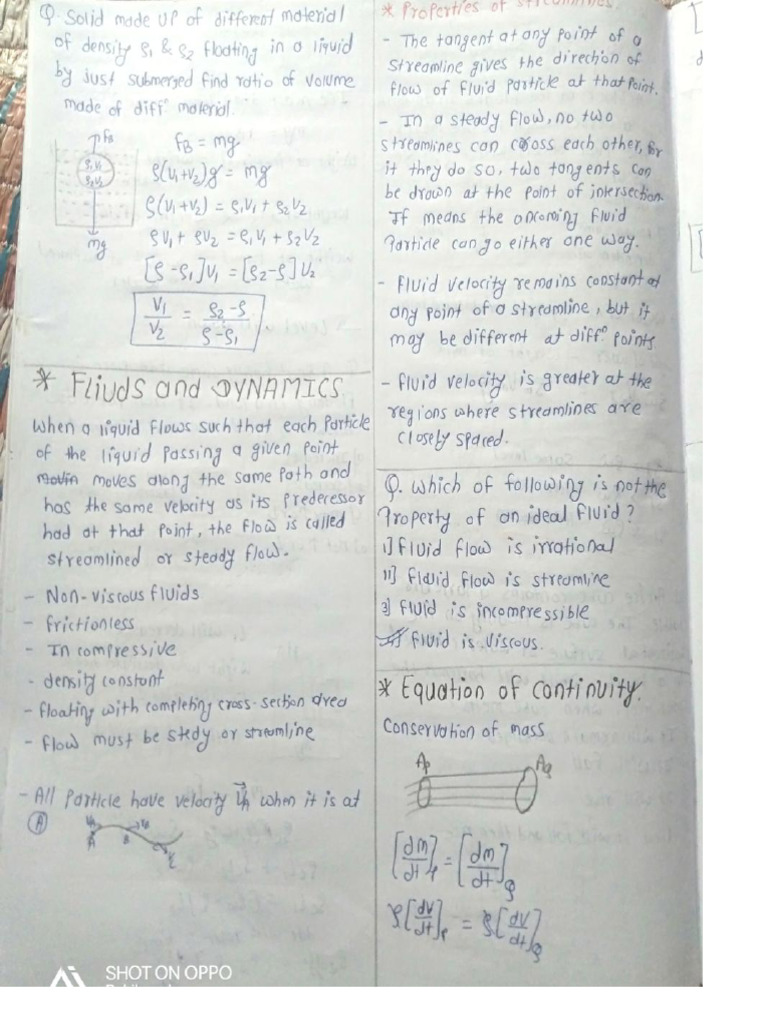 Q. Solid made up of different material
of density ρ1 & ρ2 floating in a liquid
by just submerged find ratio of volume
made of diffn material.
FB
ρ1V1
ρ2V2
mg
FB = mg
ρ(V1+V2)g = mg
ρ(V1+V2) = ρ1V1 + ρ2V2
ρV1 + ρV2 = ρ1V1 + ρ2V2
[ρ-ρ1]V1 = [ρ2-ρ]V2
V1/V2 = ρ2-ρ/ρ-ρ1
* Fliuds and DYNAMICS
When a liquid flows such that each Particle
of the liquid passing a given point
movin moves along the same path and
has the same velocity as its Predecessor
had at that point, the flow is called
streamlined or steady flow.
- Non-viscous fluids
- frictionless
- In compressive
- density constant
- floating with completing cross-section area
- flow must be stedy or streamline
- All Particle have velocity when it is at
(A)
* Properties of streamlines
- The tangent at any point of a
streamline gives the direction of
flow of fluid particle at that point.
- In a steady flow, no two
streamlines can cross each other, for
it they do so, two tangents can
be drawn at the point of intersection.
If means the oncoming fluid
Particle can go either one way.
- fluid velocity remains constant at
any point of a streamline, but it
may be different at diffn points.
- fluid velocity is greater at the
regions where streamlines are
closely spaced.
Q. which of following is not the
Property of an ideal fluid?
1] fluid flow is irrational
11] fluid flow is streamline
3] fluid is incompressible
fluid is viscous.
* Equation of continuity.
Conservation of mass
Ap AQ
[dm/dt]P = [dm/dt]Q
ρ[dV/dt]P = ρ[dV/dt]Q
SHOT ON OPPO